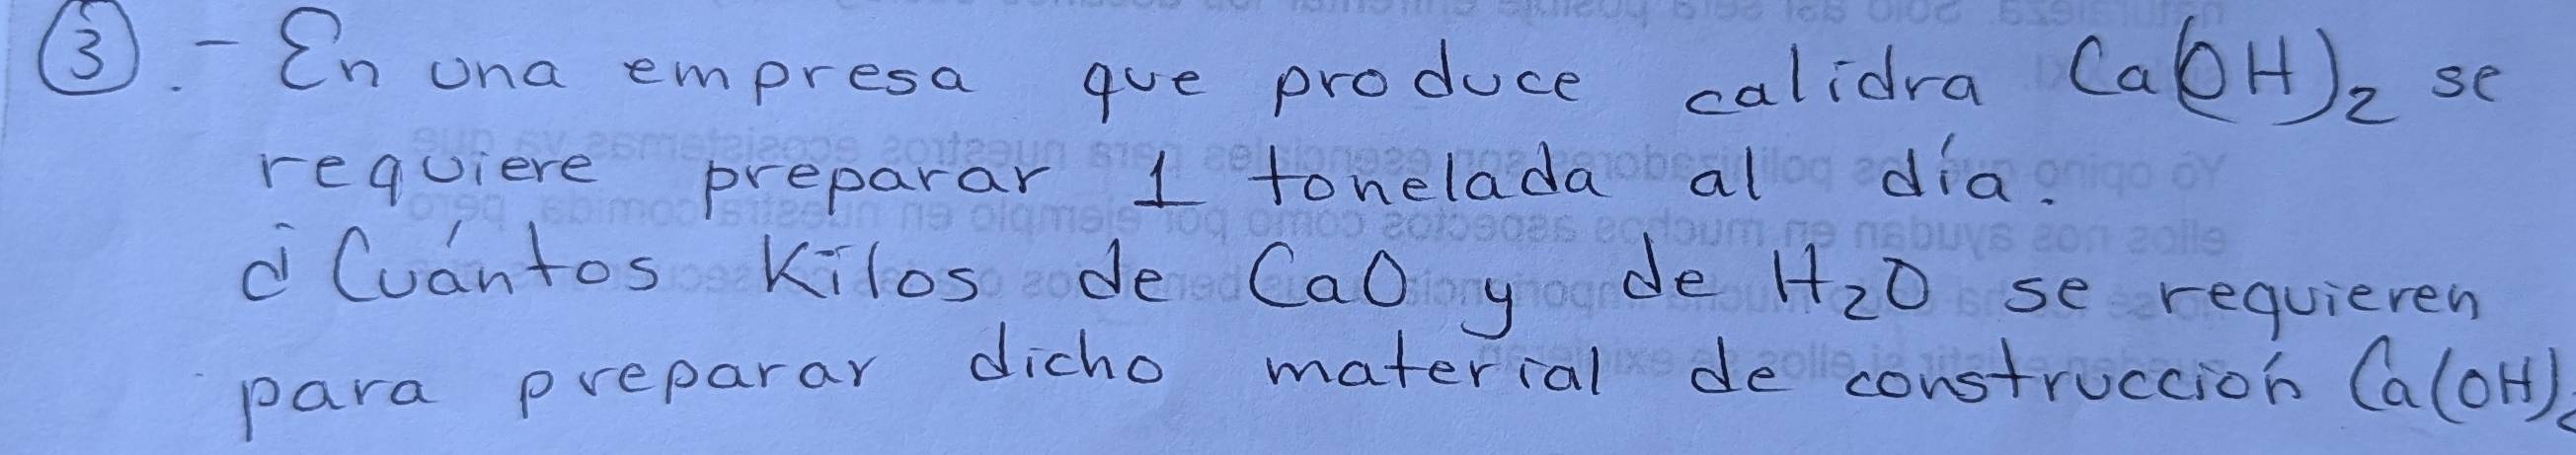 ③.- En una empresa que produce calidra Ca(OH)₂ se
requiere preparar 1 tonelada al día.
¿Cuántos Kilos de CaO y de H₂O se requieren
para preparar dicho material de construcción Ca(OH)₂